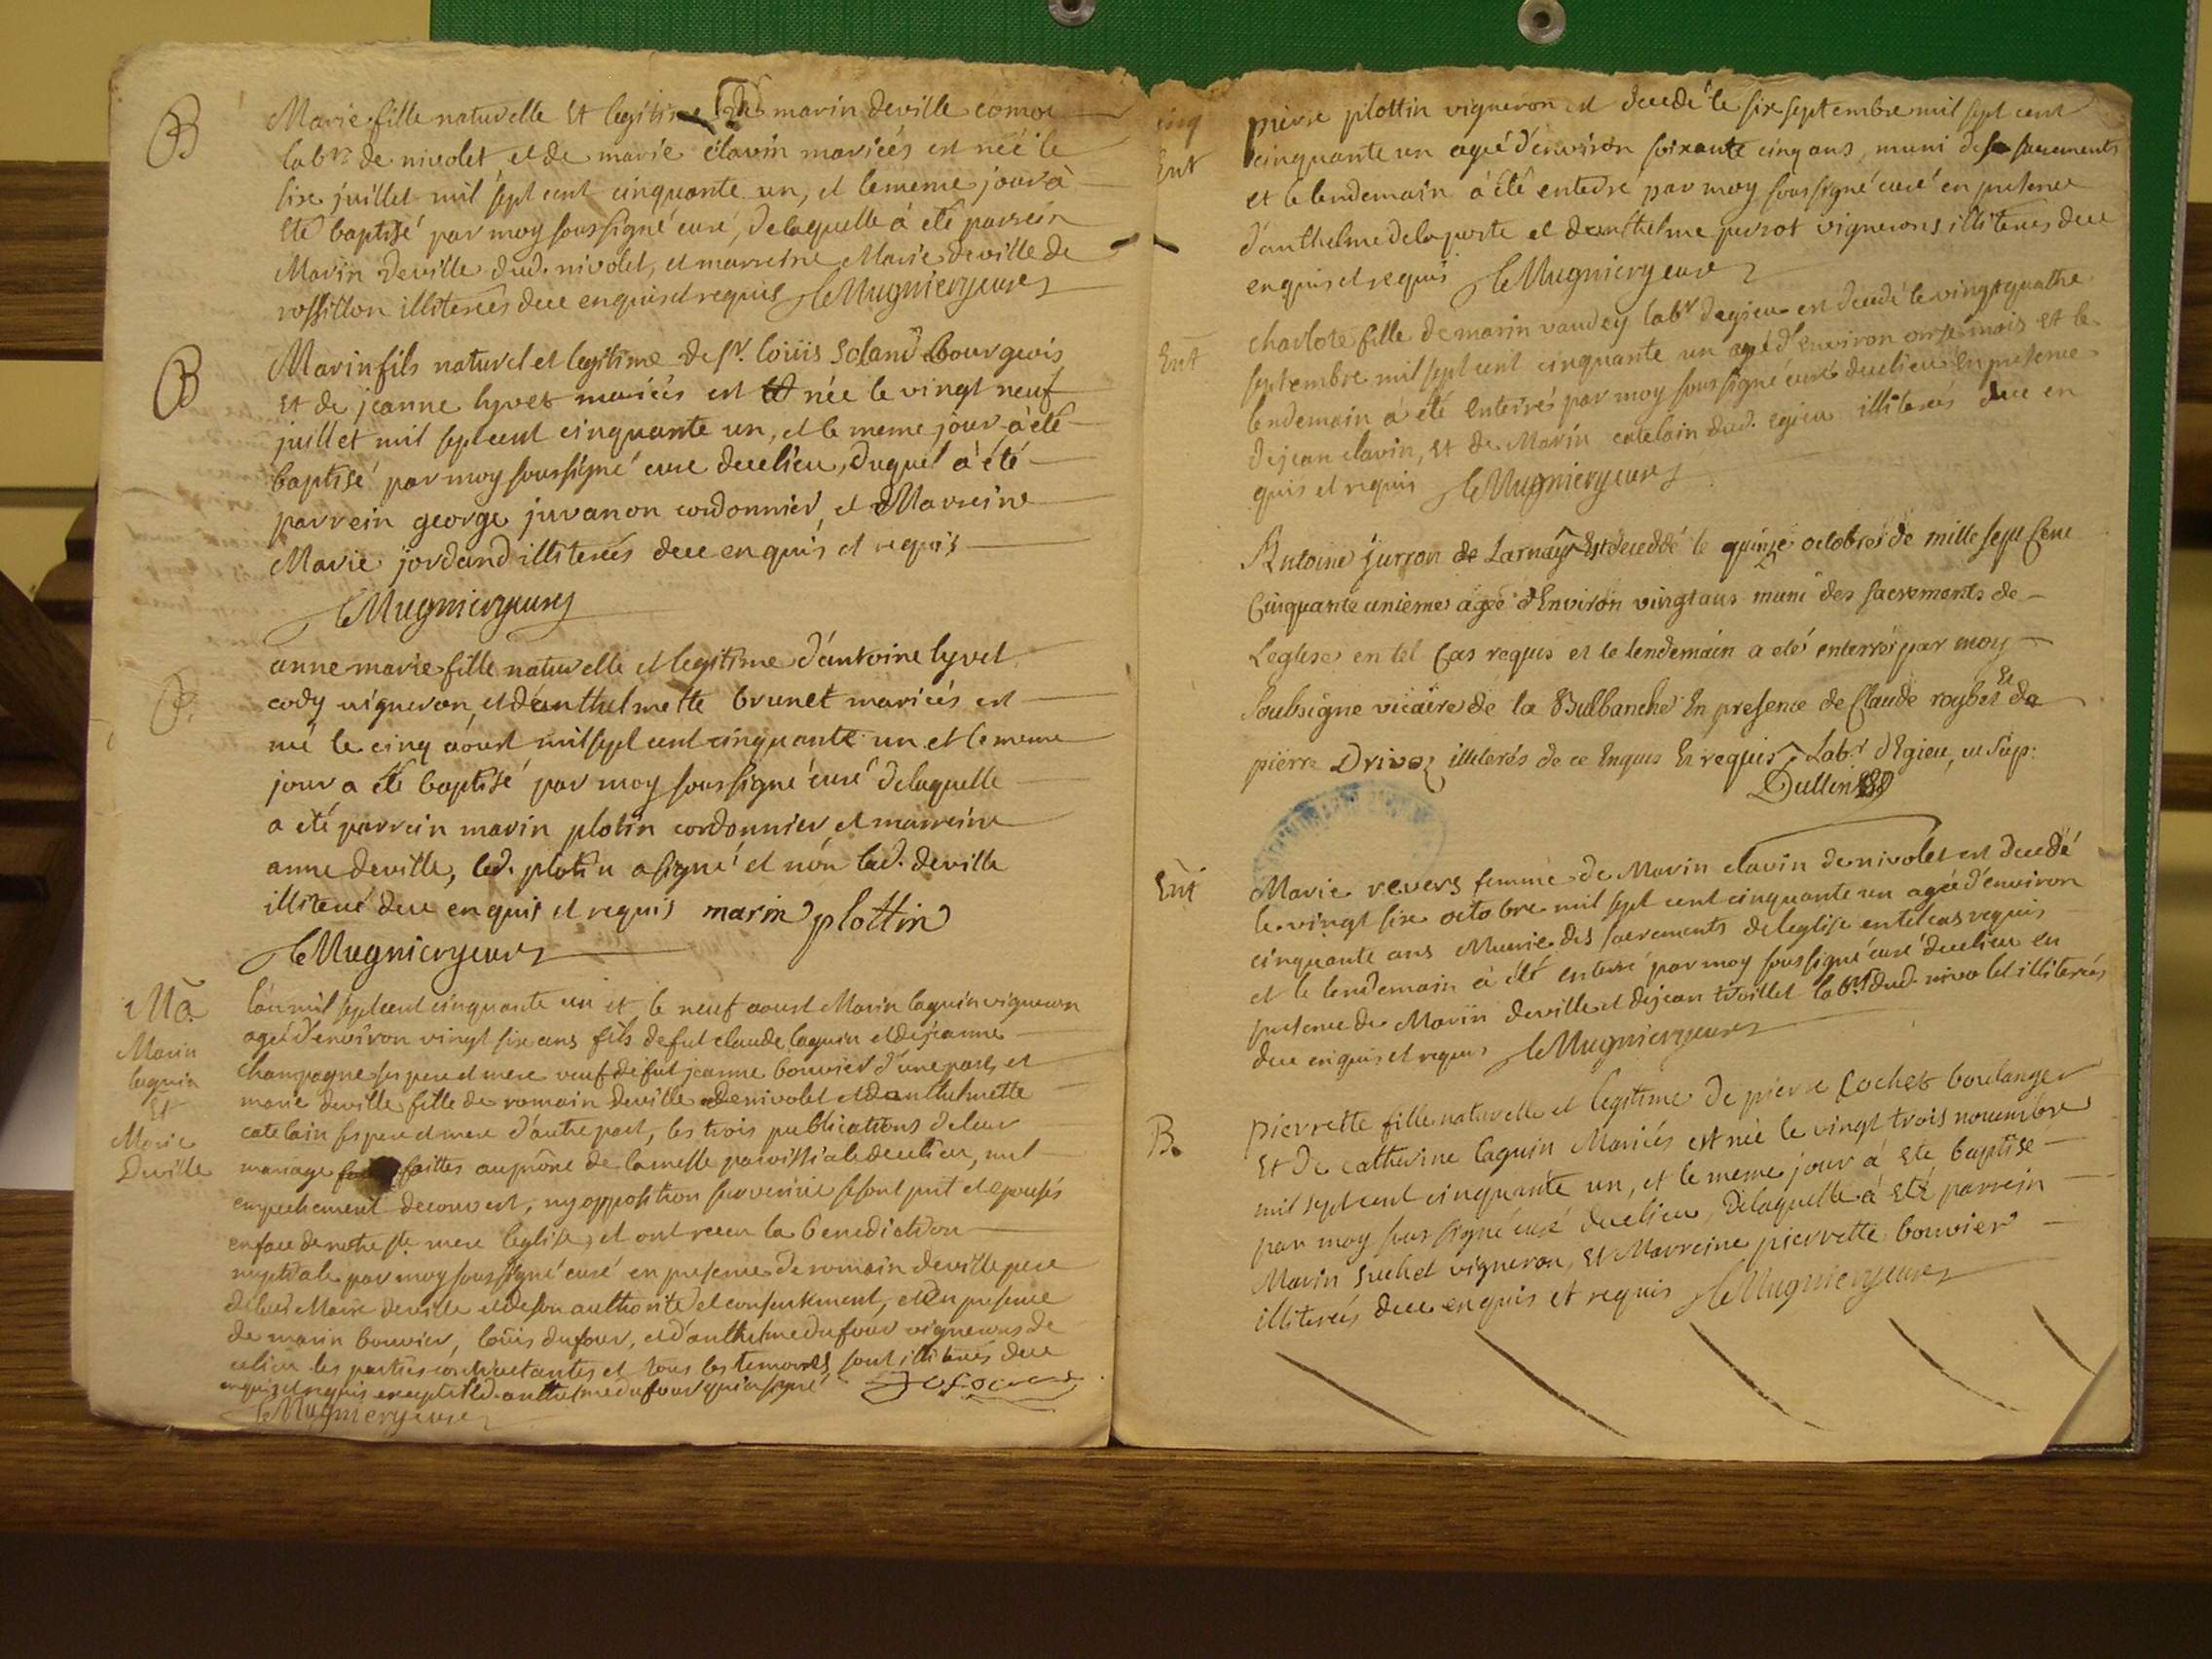 B
Marie fille naturelle et legitime de marin deville comoz
labr. de nivolet et de marie clavin mariées est née le
six juillet mil sept cent cinquante un, et le meme jour à
eté baptisé par moy soussigné curé, de laquelle à eté parrein
Marin deville dud. nivolet, et marreine Marie deville de
rossillon illiterées de ce enquis et requis Le Mugnier curé
B
Marin fils naturel et legitime de sr. loüis bourgeois
et de jeanne lyvet mariées est née le vingt neuf
juillet mil sept cent cinquante un, et le meme jour à été
baptisé par moy soussigné curé de ce lieu, duquel à été
parrein george juvanon cordonnier, et Marreine
Marie jordand illiterées de ce enquis et requis
Le Mugnier curé
B.
anne marie fille naturelle et legitime d'antoine lyvet
cody vigneron, et d'anthelmette brunet mariées est
née le cinq aoust mil sept cent cinquante un et le meme
jour a été baptisé par moy soussigné curé de laquelle
a été parrein marin plotin cordonnier et marreine
anne deville, led. plotin a signé et non lad. deville
illiteré de ce enquis et requis marin plottin
Le Mugnier curé
Ma.
Marin
laguin
et
Marie
Deville
l'an mil sept cent cinquante un et le neuf aoust Marin laguin vigneron
agé d'environ vingt six ans fils de fut claude laguin et de jeanne
champagne ses pere et mere veuf de fut jeanne bouvier d'une part, et
marie deville fille de romain deville de nivolet et d'anthelmette
catelain ses pere et mere d'autre part, les trois publications de leur
mariage faittes au prône de la messe paroissiale de ce lieu, nul
empechement decouvert, ny opposition survenüe se sont prit et epousés
en face de notre ste. mere l'eglise, et ont receu la benediction
nuptiale par moy soussigné curé en presence de romain deville pere
de lad. Marie deville et de son authorité et consentement, et en presence
de marin bouvier, loüis dufour, et d'anthelme dufour vignerons de
ce lieu les parties contractantes et tous les temoins sont illiterés de ce
enquis et requis excepté led. anthelme dufour qui a signé Dufour
Le Mugnier curé
Ent
pierre plottin vigneron est decedé le six septembre mil sept cent
cinquante un agé d'environ soixante cinq ans, muni de sacrements
et le lendemain à été enterré par moy soussigné curé en presence
d'anthelme delaporte et d'anthelme perrot vignerons illiterés de ce
enquis et requis Le Mugnier curé
Ent
charlote fille de marin vaudey labr. d'egieu est decedé le vingt quatre
septembre mil sept cent cinquante un agé d'environ onze mois et le
lendemain à été enterré par moy soussigné curé de ce lieu en presence
de jean clavin, et de Marin catelain dud. egieu illiterés de ce en
quis et requis Le Mugnier curé
Antoine Jurron de Larnay est decedé le quinze octobre de mille sept Cent
Cinquante unieme agée d'Environ vingt ans muni des sacrements de
Leglise en tel Cas requis et le lendemain a eté enterré par moy
Soubsigne vicaire de la Balbanche En presence de Claude roybet et de
pierre Drivoz illiterés de ce Enquis Et requis Labr. d'Egieu, ut sup:
Dullin
Ent
Marie revers femme de Marin clavin de nivolet est decedé
le vingt six octobre mil sept cent cinquante un agée d'environ
cinquante ans Munie des sacrements de leglise en tel cas requis
et le lendemain à été enterré par moy soussigné curé de ce lieu en
presence de Marin deville et de jean trvoillet labrs. dud. nivolet illiterées
de ce enquis et requis Le Mugnier curé
B.
pierrette fille naturelle et legitime de pierre Cochet boulanger
et de catherine laguin Mariées est née le vingt trois novembre
mil sept cent cinquante un, et le meme jour à eté baptisé
par moy soussigné curé de ce lieu, de laquelle à eté parrein
Marin suchet vigneron, et Marreine pierrette bouvier
illiterées de ce enquis et requis Le Mugnier curé